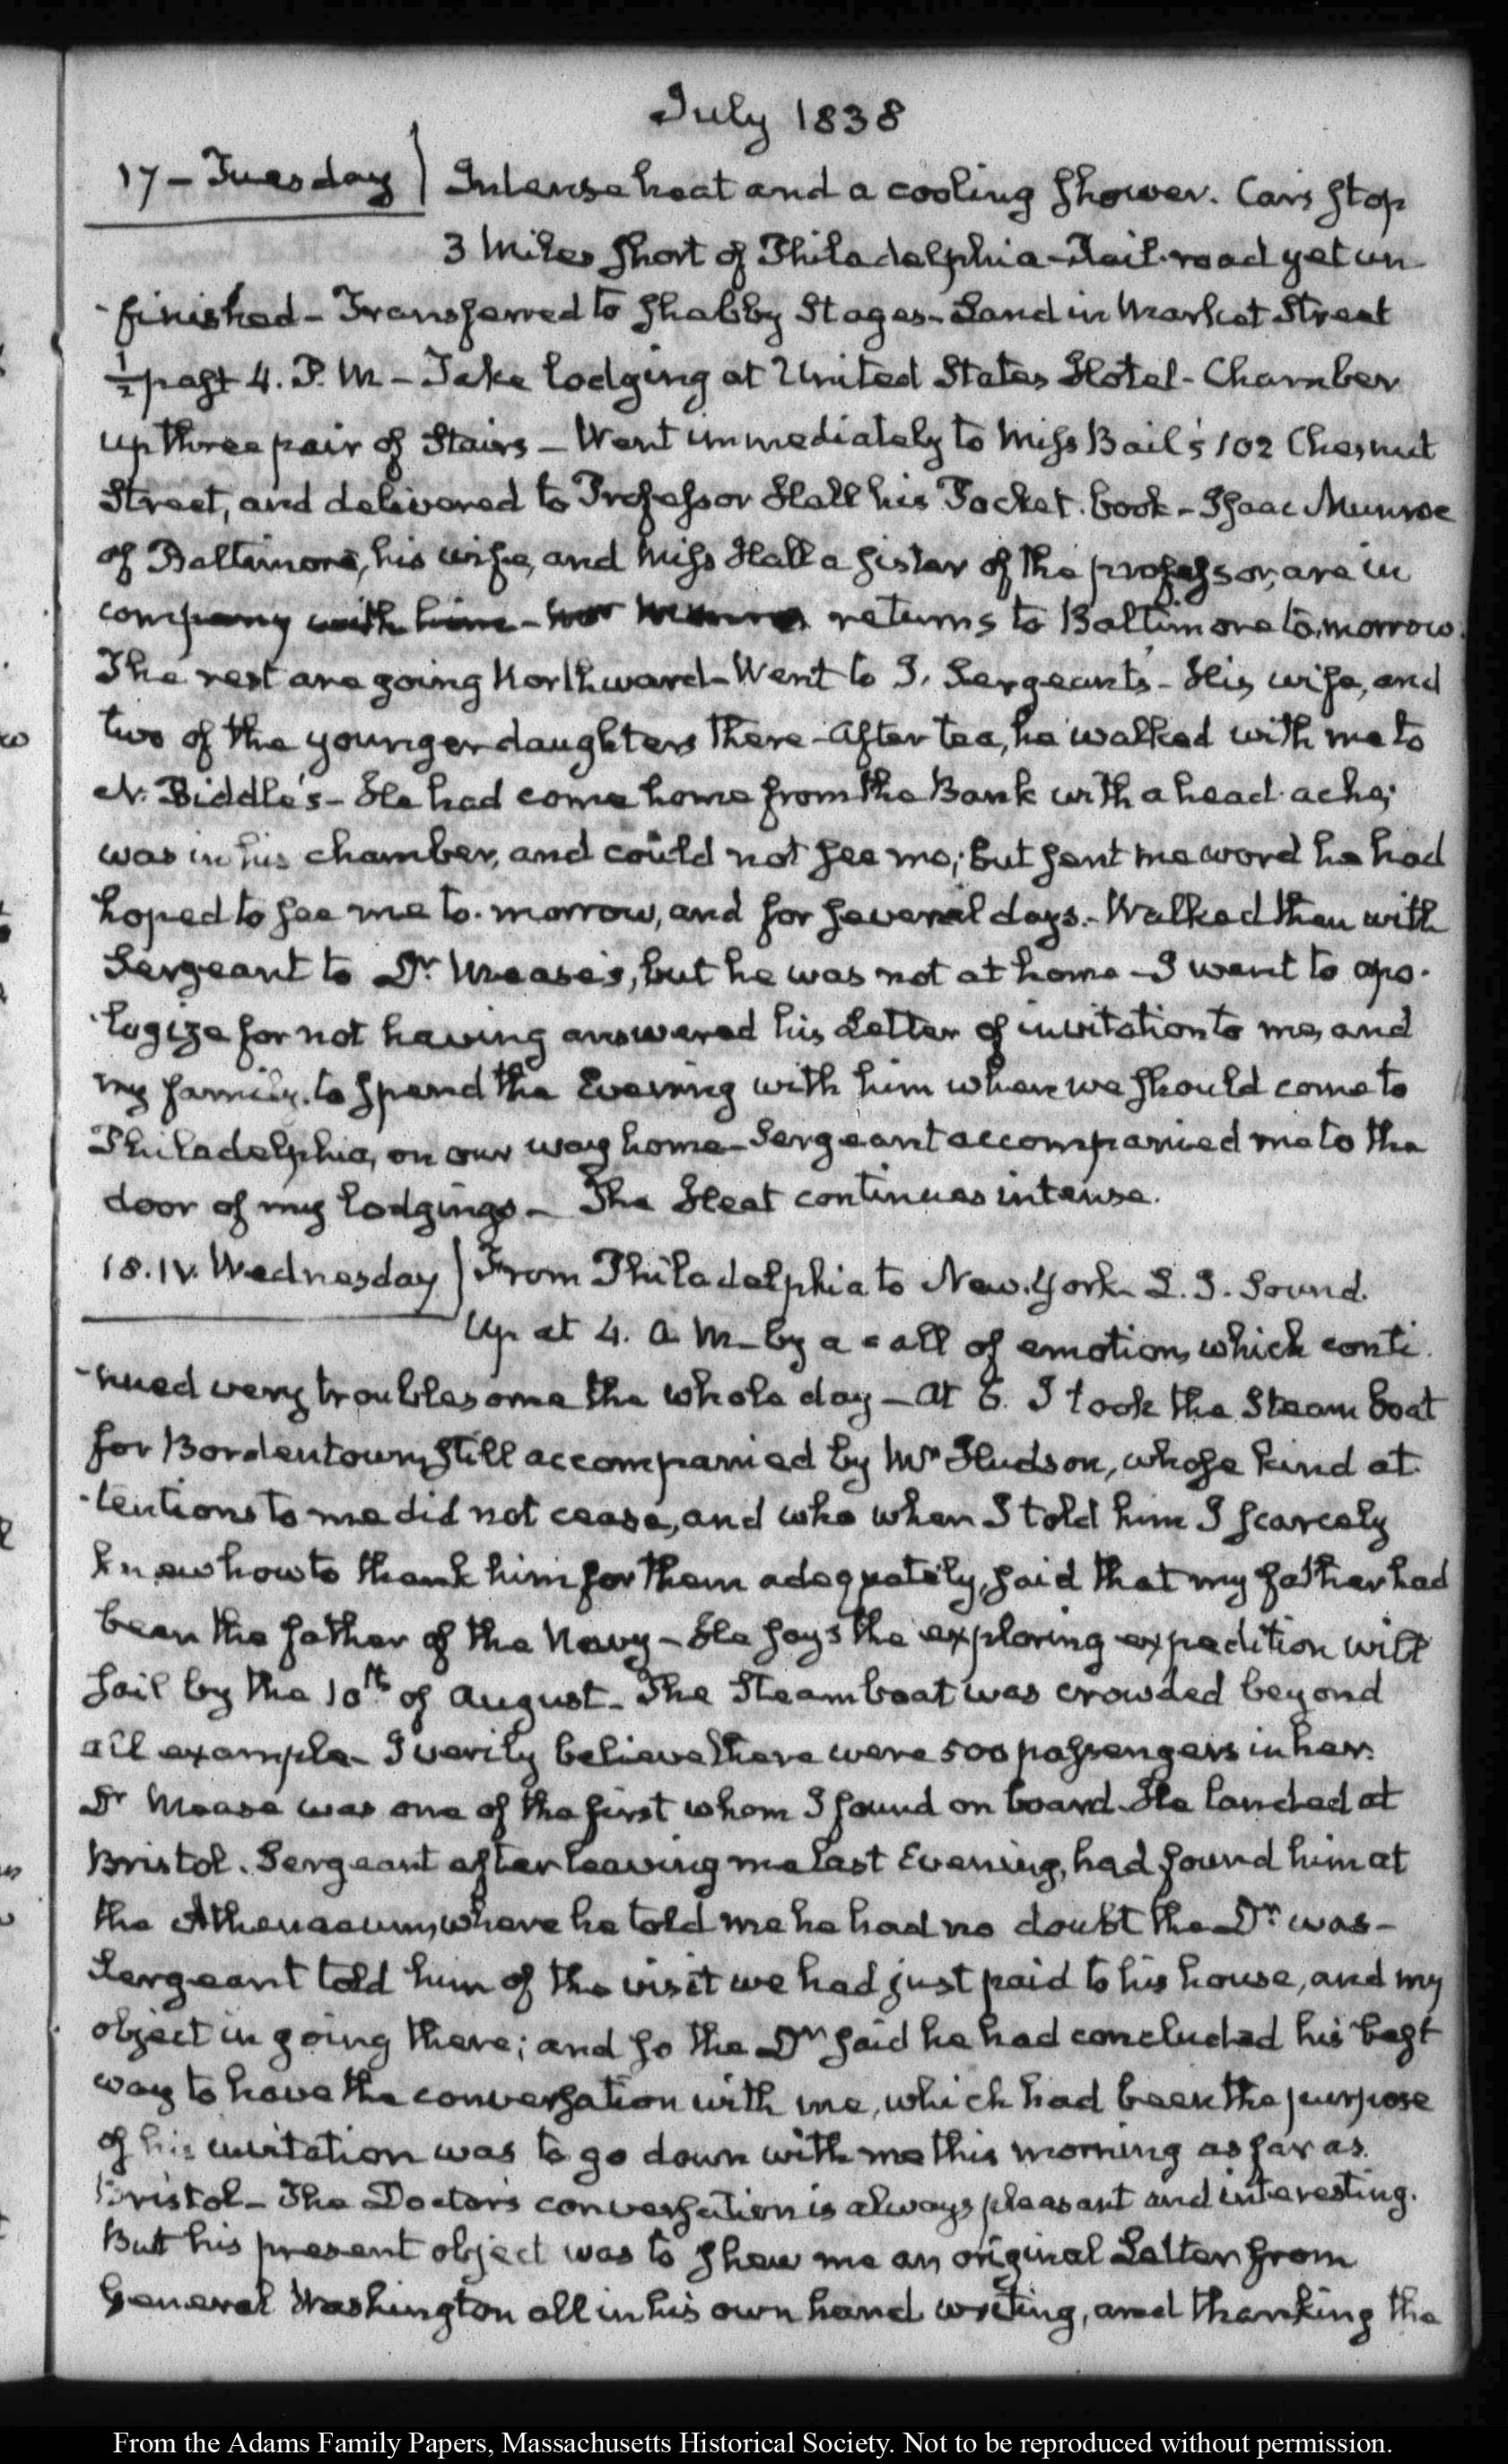 July 1838
17 – Tuesday) Intense heat and a cooling shower. Cars stop
3 Miles short of Philadelphia – Rail-road yet un
-finished – Transferred to shabby Stages – Land in Market Street
½ past 4. P. M – Take lodging at United States Hotel – Chamber
up three pair of Stairs – Went immediately to Miss Bail's 102 Chesnut
Street, and delivered to Professor Hall his Pocket-book – Isaac Munroe
of Baltimore, his wife, and Miss Hall a sister of the professor, are in
company with him – returns to Baltimore to-morrow.
The rest are going Northward – Went to J. Sergeant's – His wife, and
two of the younger daughters there – After tea, he walked with me to
N. Biddle's – He had come home from the Bank with a head-ache;
was in his chamber, and could not see me; but sent me word he had
hoped to see me to-morrow, and for several days. – Walked then with
Sergeant to Dr. Mease's, but he was not at home – I went to apo-
-logize for not having answered his Letter of invitation to me, and
my family, to spend the Evening with him when we should come to
Philadelphia, on our way home – Sergeant accompanied me to the
door of my lodgings – The Heat continues intense.
18. IV. Wednesday) From Philadelphia to New-York – L. I. Sound.
Up at 4. A. M – by a call of emotion, which conti-
-nued very troublesome the whole day – At 6. I took the Steam boat
for Bordentown, still accompanied by Mr Hudson, whose kind at-
-tentions to me did not cease, and who when I told him I scarcely
knew how to thank him for them adequately, said that my father had
been the father of the Navy – He says the exploring expedition will
sail by the 10th of August – The Steam boat was crowded beyond
all example – I verily believe there were 500 passengers in her.
Dr Mease was one of the first whom I found on board. He landed at
Bristol. Sergeant after leaving me last Evening, had found him at
the Athenaeum, where he told me he had no doubt the Dr was –
Sergeant told him of the visit we had just paid to his house, and my
object in going there; and so the Dr said he had concluded his best
way to have the conversation with me, which had been the purpose
of his invitation was to go down with me this morning as far as
Bristol – The Doctor's conversation is always pleasant and interesting.
But his present object was to shew me an original Letter from
General Washington all in his own hand writing, and thanking the
From the Adams Family Papers, Massachusetts Historical Society. Not to be reproduced without permission.